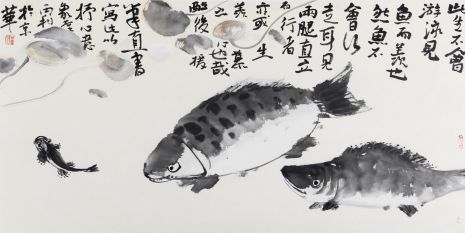 此生不會
游泳見
魚而羨也
然魚不
會行
走耳見
兩腿直立
而行者
亦或生
羨慕
之心也哉
酣後援
筆直書
寫此以
抒心意
於京
華